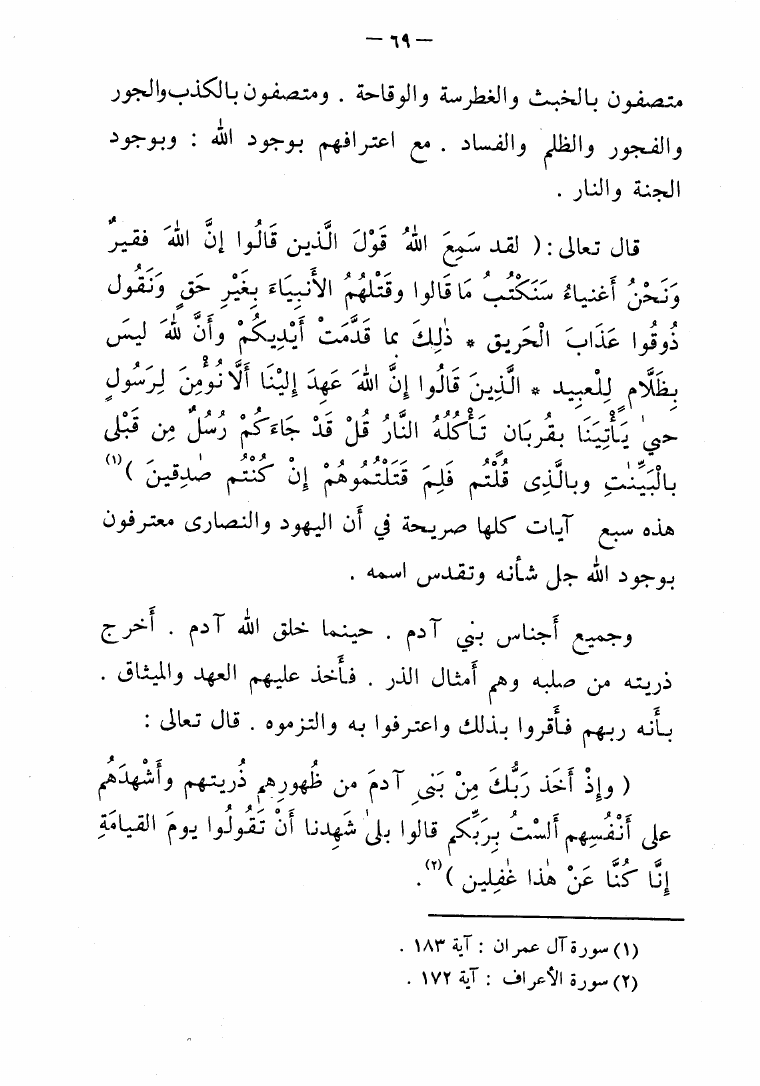 — ٦٩ —
متصفون بالخبث والغطرسة والوقاحة . ومتصفون بالكذب والجور
والفجور والظلم والفساد . مع اعترافهم بوجود الله : وبوجود
الجنة والنار .
قال تعالى : ( لقد سَمِعَ اللهُ قَوْلَ الَّذين قَالُوا إنَّ اللهَ فقيرٌ
وَنَحْنُ أغنياءُ سَنَكْتُبُ مَا قالوا وقَتْلَهُمُ الأنبِيَاءَ بِغَيْرِ حَقٍ وَنَقُول
ذُوقُوا عَذَابَ الْحَريق * ذٰلِكَ بما قَدَّمَتْ أَيْدِيكُمْ وأَنَّ للهَ ليسَ
بِظَلَّامٍ لِلْعبيد * الَّذِينَ قَالُوا إِنَّ اللهَ عَهِدَ إِلَيْنَا أَلَّا نُؤْمِنَ لِرَسُولٍ
حتىٰ يَأْتِيَنَا بقُربَانٍ تَأْكُلُهُ النَّارُ قُلْ قَدْ جَاءَكُمْ رُسُلٌ مِن قَبْلى
بالْبَيِّنٰتِ وبالَّذِى قُلْتُم فَلِمَ قَتَلْتُمُوهُمْ إنْ كُنْتُم صٰدِقينَ ) (١)
هذه سبع آيات كلها صريحة في أن اليهود والنصارى معترفون
بوجود الله جل شأنه وتقدس اسمه .
وجميع أجناس بني آدم . حينما خلق الله آدم . أخرج
ذريته من صلبه وهم أمثال الذر . فأخذ عليهم العهد والميثاق .
بأنه ربهم فأقروا بذلك واعترفوا به والتزموه . قال تعالى :
( وإِذْ أَخَذ رَبُّكَ مِنْ بَنى آدمَ من ظُهورِهِم ذُريتهم وأَشْهَدَهُم
على أَنْفُسِهِم أَلَسْتُ بِرَبِّكم قالوا بلىٰ شَهِدنا أَنْ تَقُولُوا يومَ القيامَةِ
إنَّا كُنَّا عَنْ هٰذا غٰفِلين ) (٢) .
(١) سورة آل عمران : آية ١٨٣ .
(٢) سورة الأعراف : آية ١٧٢ .